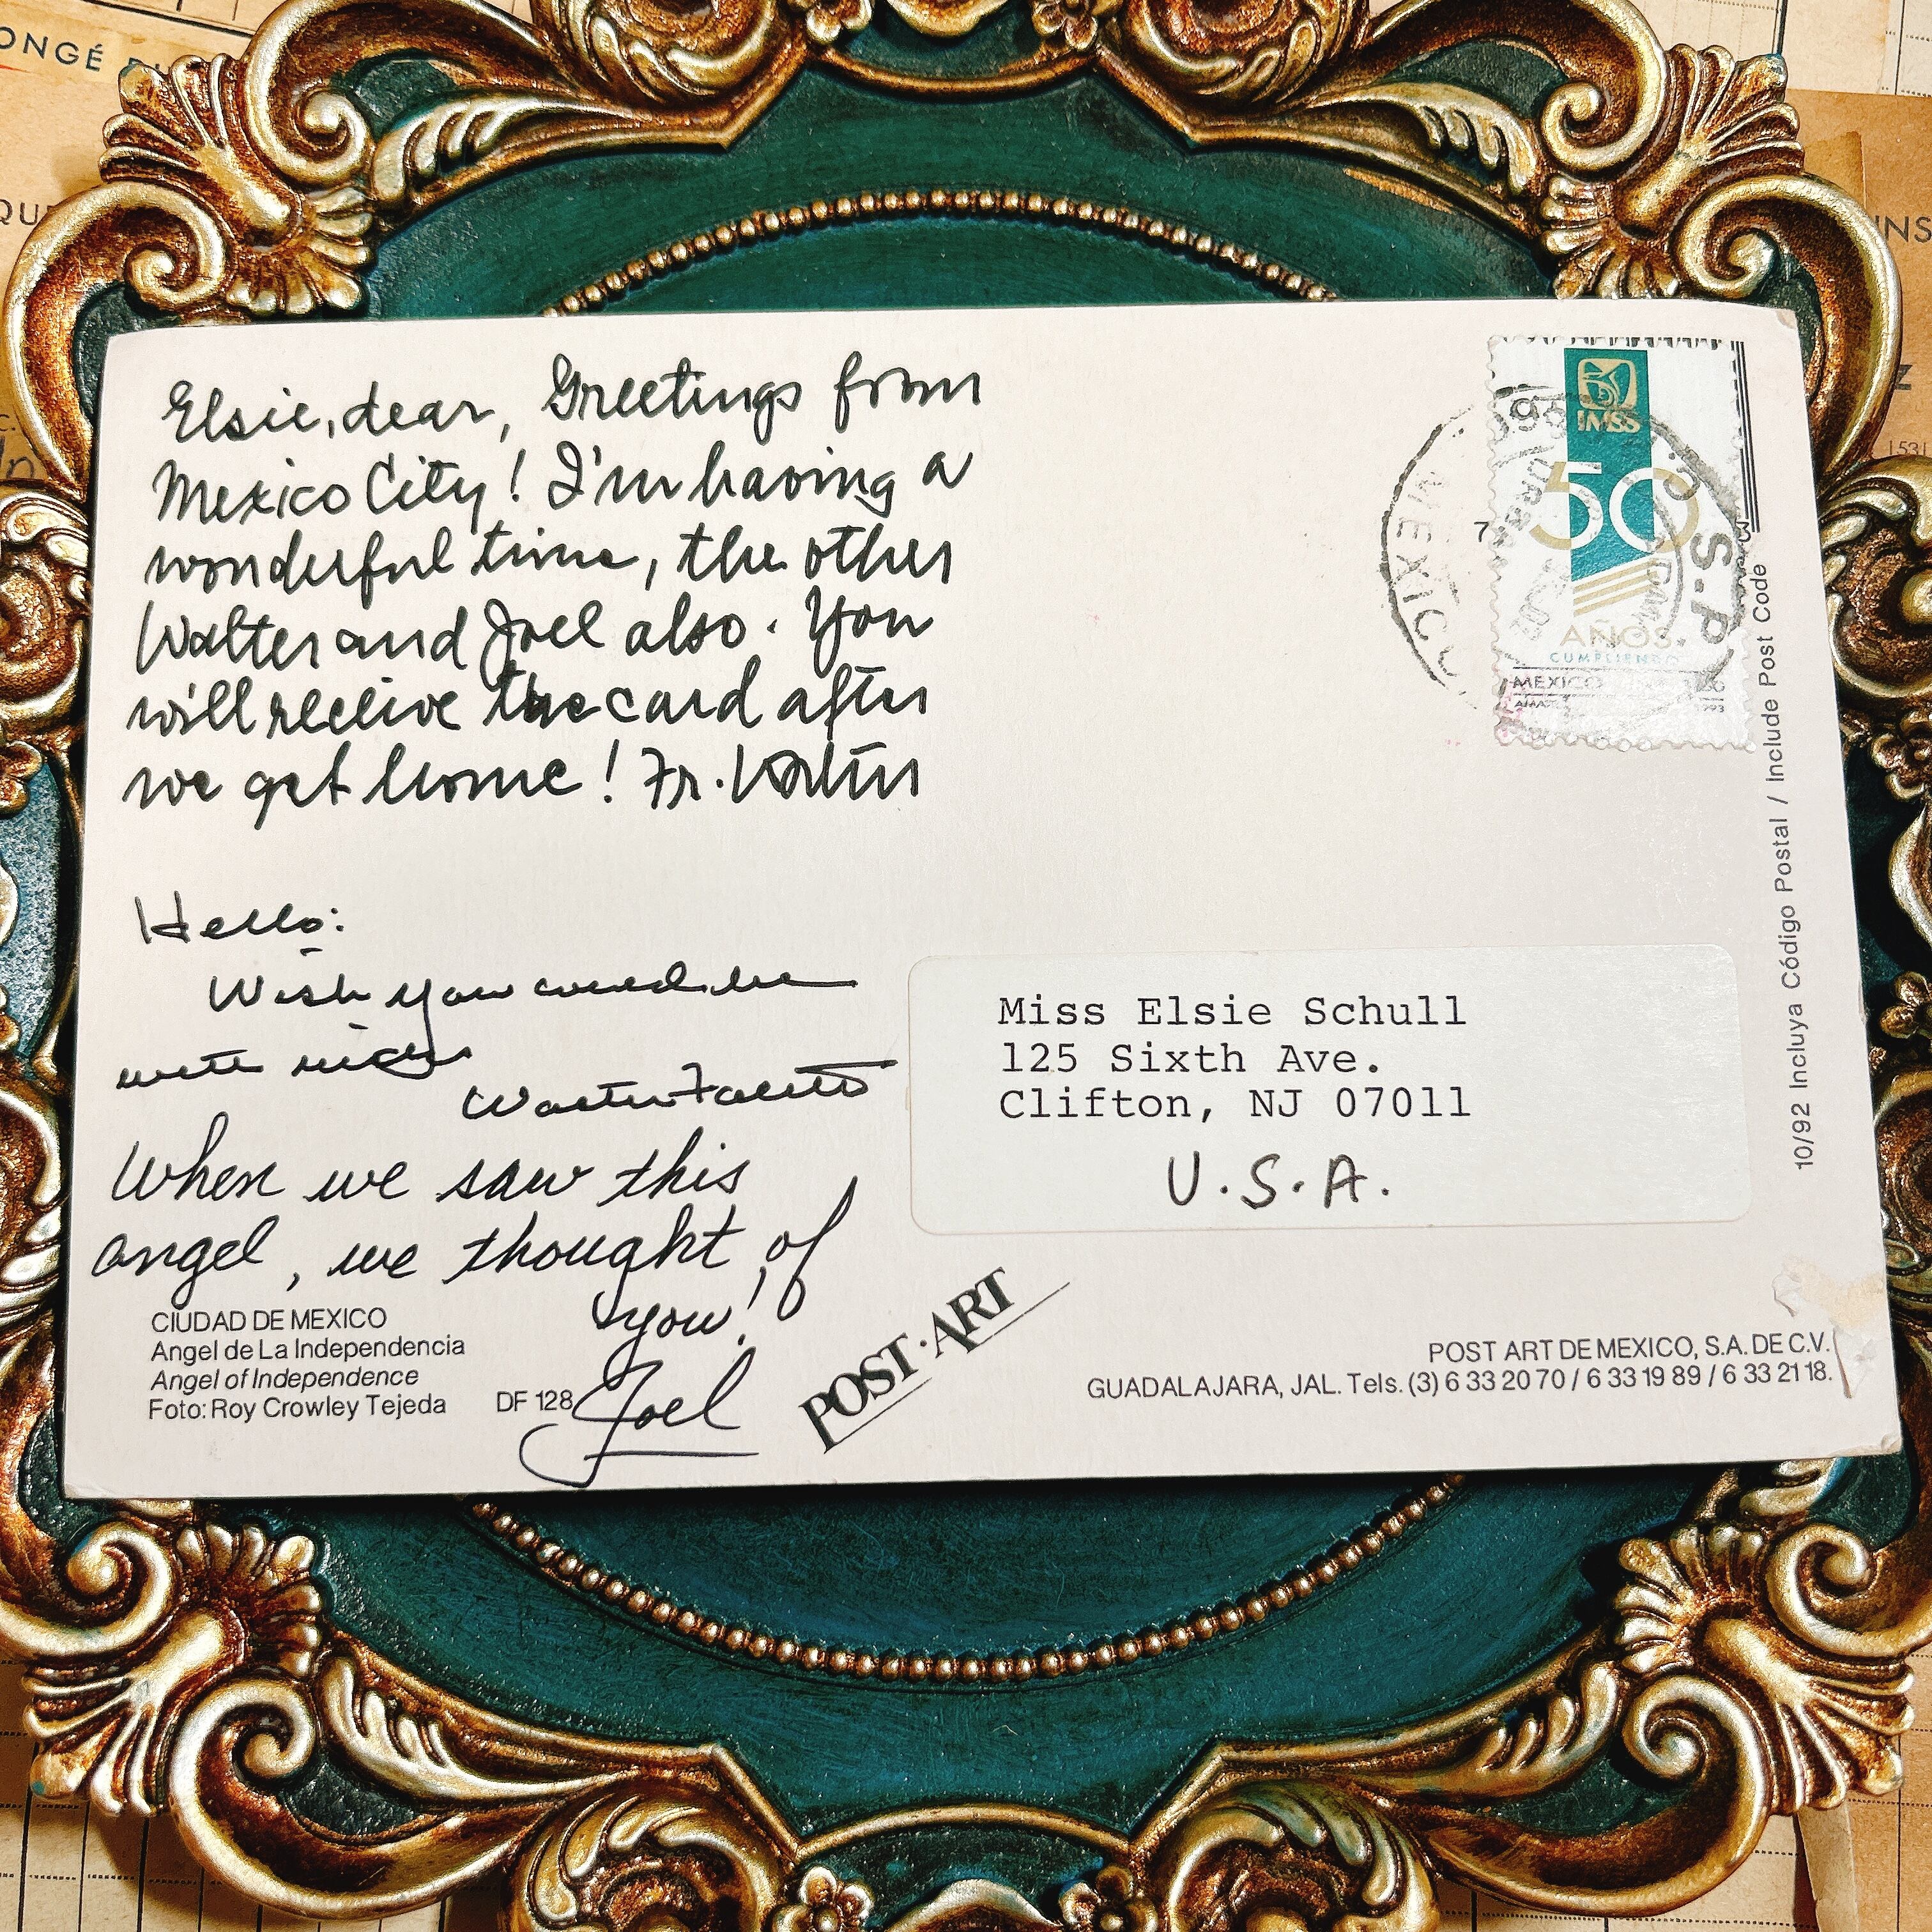 Elsie, dear, Greetings from
Mexico City! I'm having a
wonderful time, the other
Walter and Joel also. You
will receive the card after
we get home! Fr. Walter
Hello:
Wish you could be
with us
Walter
When we saw this
angel, we thought of
you!
Joel
CIUDAD DE MEXICO
Angel de La Independencia
Angel of Independence
Foto: Roy Crowley Tejeda DF 128
POST·ART
IMSS
50
AÑOS
CUMPLIENDO
MEXICO
MEXICO
Miss Elsie Schull
125 Sixth Ave.
Clifton, NJ 07011
U.S.A.
POST ART DE MEXICO, S.A. DE C.V.
GUADALAJARA, JAL. Tels. (3) 6 33 20 70 / 6 33 19 89 / 6 33 21 18.
10/92 Incluya Código Postal / Include Post Code